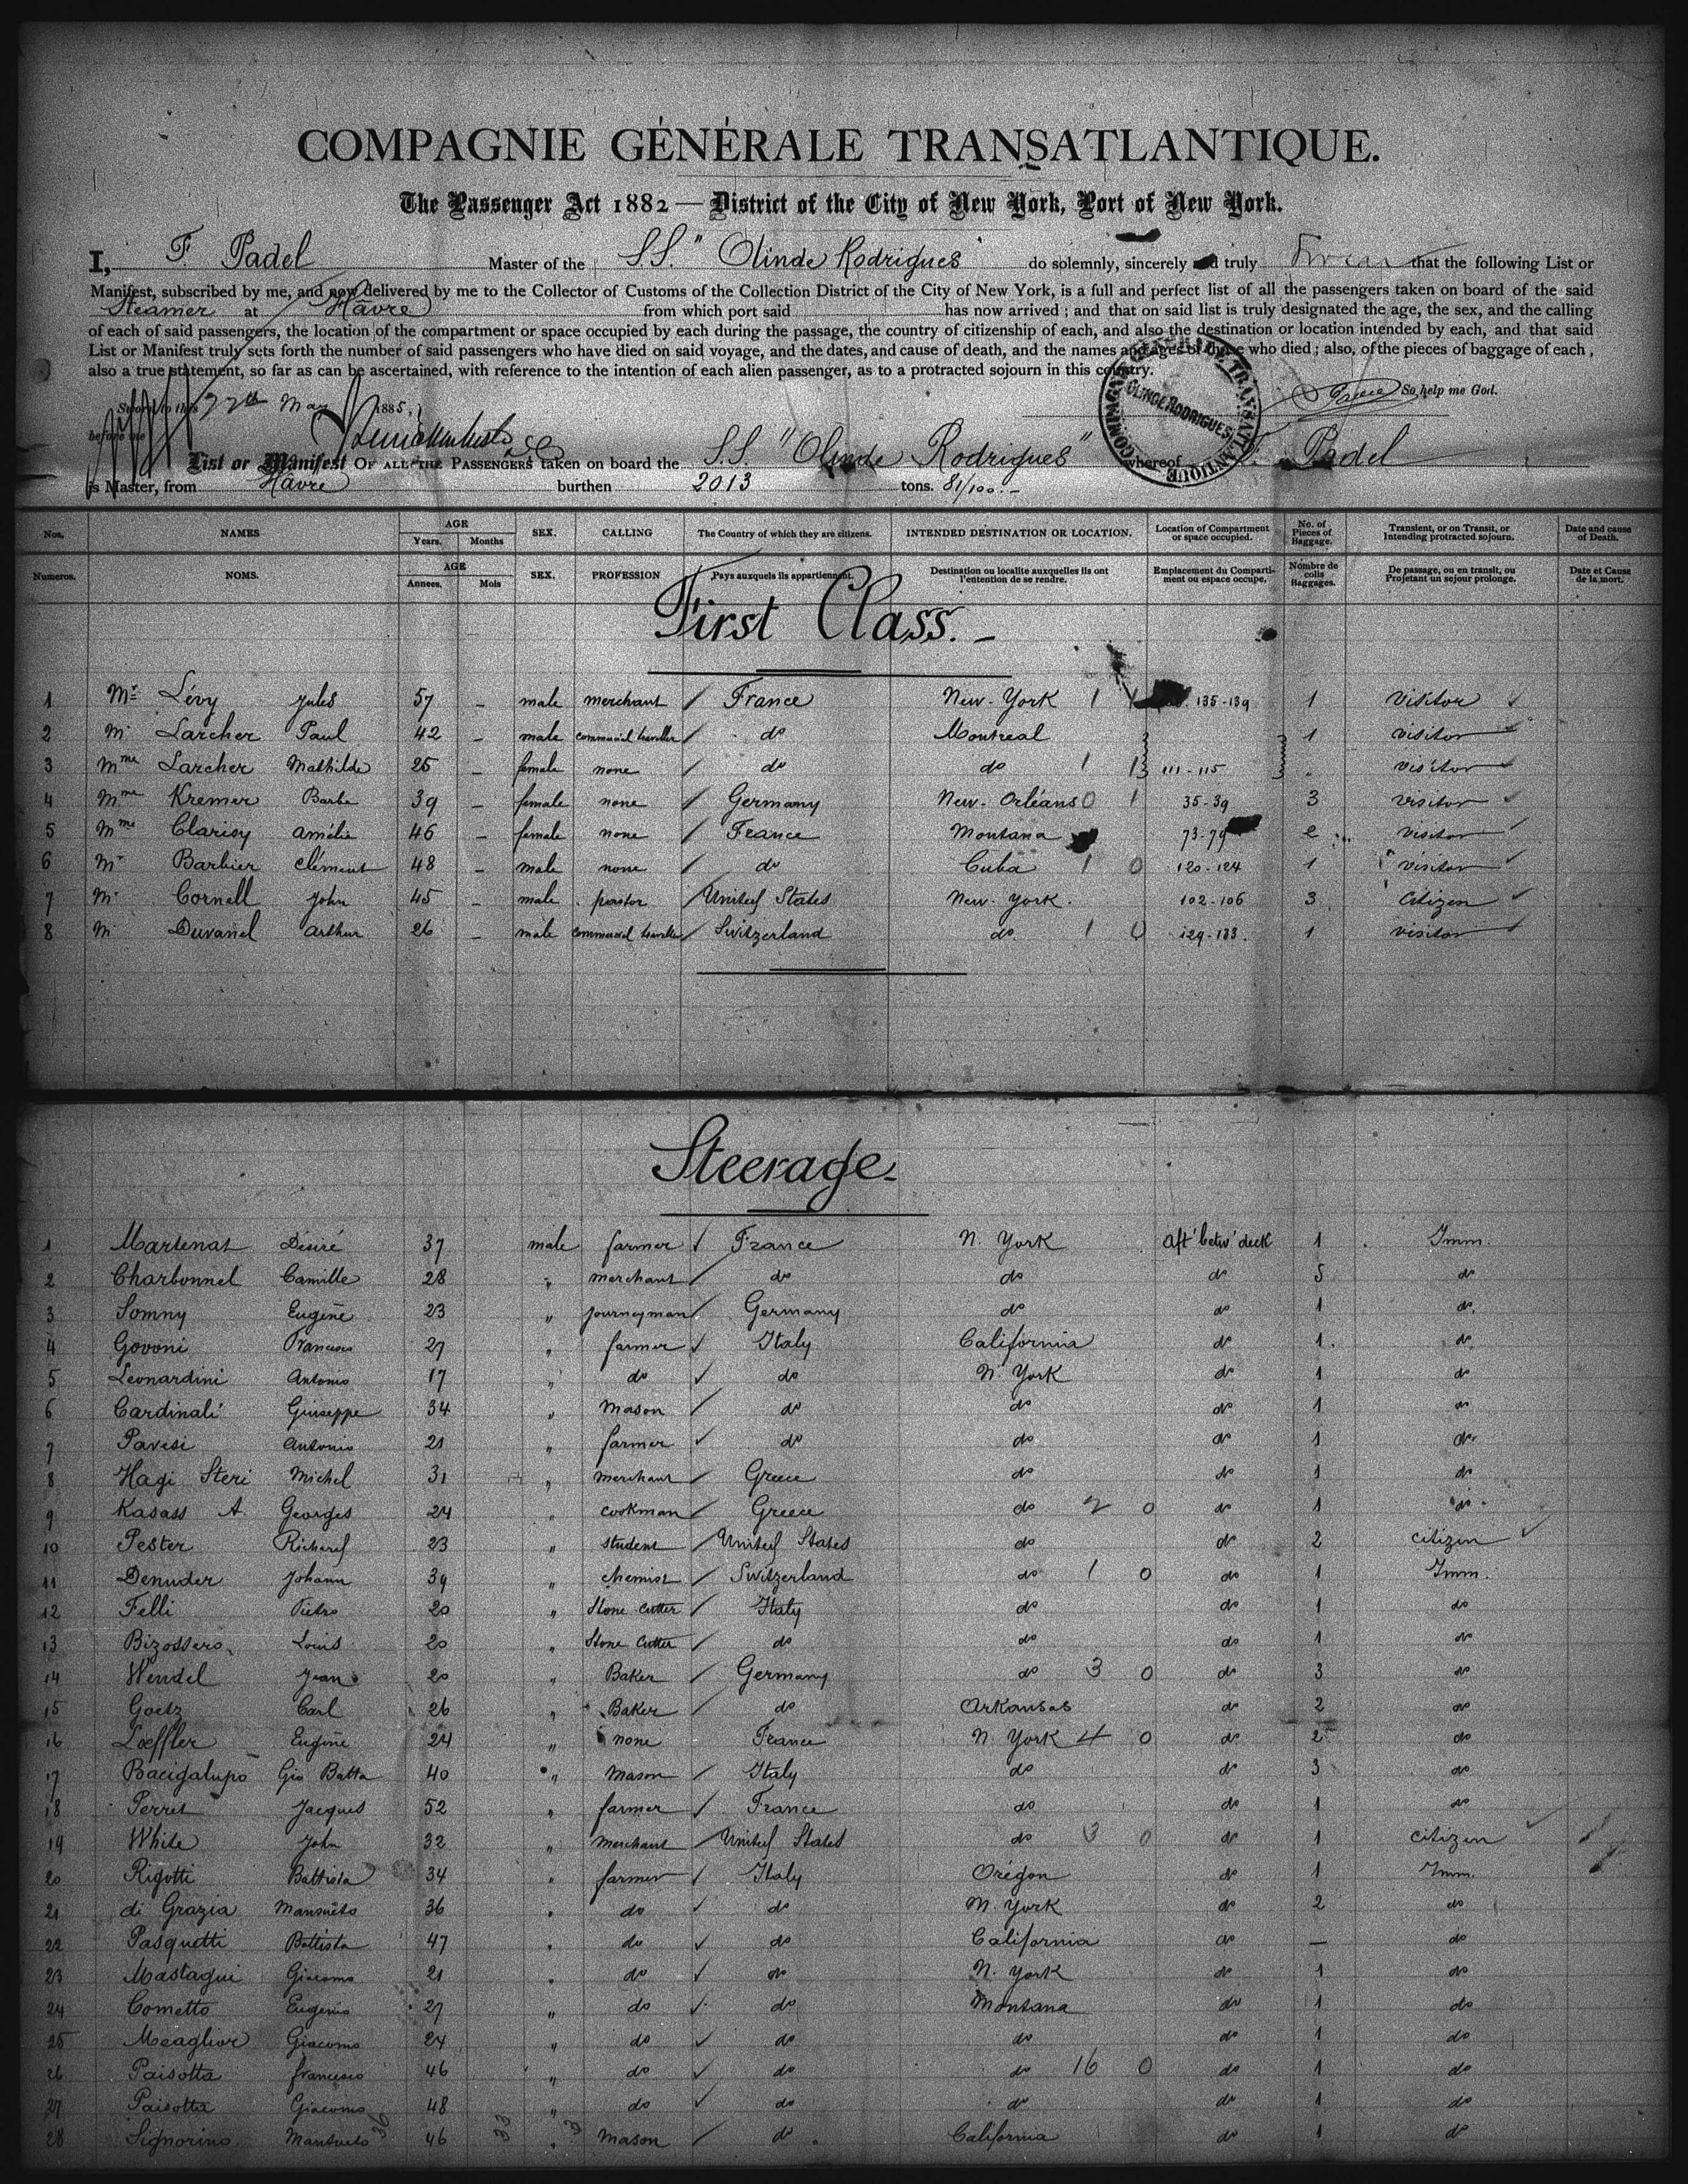 COMPAGNIE GÉNÉRALE TRANSATLANTIQUE.
The Passenger Act 1882 — District of the City of New York, Port of New York.
I, F. Padel Master of the S.S. "Olinde Rodrigues" do solemnly, sincerely and truly swear that the following List or
Manifest, subscribed by me, and now delivered by me to the Collector of Customs of the Collection District of the City of New York, is a full and perfect list of all the passengers taken on board of the said
Steamer at Hâvre from which port said has now arrived ; and that on said list is truly designated the age, the sex, and the calling
of each of said passengers, the location of the compartment or space occupied by each during the passage, the country of citizenship of each, and also the destination or location intended by each, and that said
List or Manifest truly sets forth the number of said passengers who have died on said voyage, and the dates, and cause of death, and the names and ages of those who died ; also, of the pieces of baggage of each ,
also a true statement, so far as can be ascertained, with reference to the intention of each alien passenger, as to a protracted sojourn in this country.
So help me God.
Sworn to this 22d May 1885,
before me
COMPAGNIE GLE TRANSATLANTIQUE OLINDE RODRIGUES
List or Manifest OF ALL THE PASSENGERS taken on board the S.S. "Olinde Rodrigues" whereof F. Padel
is Master, from Hâvre burthen 2013 tons. 81/100.-
Nos. NAMES AGE Years. Months SEX. CALLING The Country of which they are citizens. INTENDED DESTINATION OR LOCATION. Location of Compartment or space occupied. No. of Pieces of Baggage. Transient, or on Transit, or Intending protracted sojourn. Date and cause of Death.
Numeros. NOMS. AGE Annees. Mois SEX. PROFESSION Pays auxquels ils appartiennent. Destination ou localite auxquelles ils ont l'entention de se rendre. Emplacement du Comparti-ment ou espace occupe. Nombre de colis Baggages. De passage, ou en transit, ou Projetant un sejour prolonge. Date et Cause de la mort.
First Class.-
1 Mr Lévy Jules 57 - male merchant / France New-York 1 1 135-139 1 visitor
2 M. Larcher Paul 42 - male commercial traveller / do Montreal 1 visitor
3 Mme Larcher Mathilde 25 - female none / do do 1 1 111-115 " visitor
4 Mme Kremer Barbe 39 - female none / Germany New-Orléans 0 1 35-39 3 visitor
5 Mme Clarisy Amélie 46 - female none / France Montana 73-79 2 visitor
6 Mr Barbier Clément 48 - male none / do Cuba 1 0 120-124 1 visitor
7 M. Cornell John 45 - male pastor / United States New-York. 102-106 3 Citizen
8 M. Duvanel Arthur 26 - male commercial traveller / Switzerland do 1 0 129-133. 1 visitor
Steerage-
1 Martenat Désiré 37 male farmer France N. York aft' betw' deck 1 Imm.
2 Charbonnel Camille 28 " merchant do do do 5 do
3 Somny Eugène 23 " journeyman Germany do do 1 do
4 Govoni Francesco 27 " farmer Italy California do 1 do
5 Leonardini Antonio 17 " do do N. York do 1 do
6 Cardinali Giuseppe 34 " Mason do do do 1 do
7 Pavesi Antonio 21 " farmer do do do 1 do
8 Hagi Steri Michel 31 " merchant Greece do do 1 do
9 Kasass A. Georges 24 " cookman Greece do 2 0 do 1 do
10 Pester Richard 23 " student United States do do 2 citizen
11 Denuder Johann 39 " chemist Switzerland do 1 0 do 1 Imm.
12 Felli Pietro 20 " Stone Cutter Italy do do 1 do
13 Bizossero Louis 20 " Stone Cutter do do do 1 do
14 Wendel Jean 20 " Baker Germany do 3 0 do 3 do
15 Goetz Carl 26 " Baker do Arkansas do 2 do
16 Lœffler Eugène 24 " none France N. York 4 0 do 2 do
17 Bacigalupo Gio Batta 40 " Mason Italy do do 3 do
18 Perret Jacques 52 " farmer France do do 1 do
19 White John 32 " merchant United States do 3 0 do 1 citizen
20 Rigotti Battista 34 " farmer Italy Orégon do 1 Imm.
21 di Grazia Mansueto 36 " do do N. York do 2 do
22 Pasquetti Battista 47 " do do California do — do
23 Mastagui Giacomo 21 " do do N. York do 1 do
24 Cometto Eugenio 27 " do do Montana do 1 do
25 Meaglior Giacomo 24 " do do do do 1 do
26 Paisotta francesco 46 " do do do 16 0 do 1 do
27 Paisotta Giacomo 48 " do do do do 1 do
28 Signorino Mansueto 36 46 33 " 3 Mason do California do 1 do